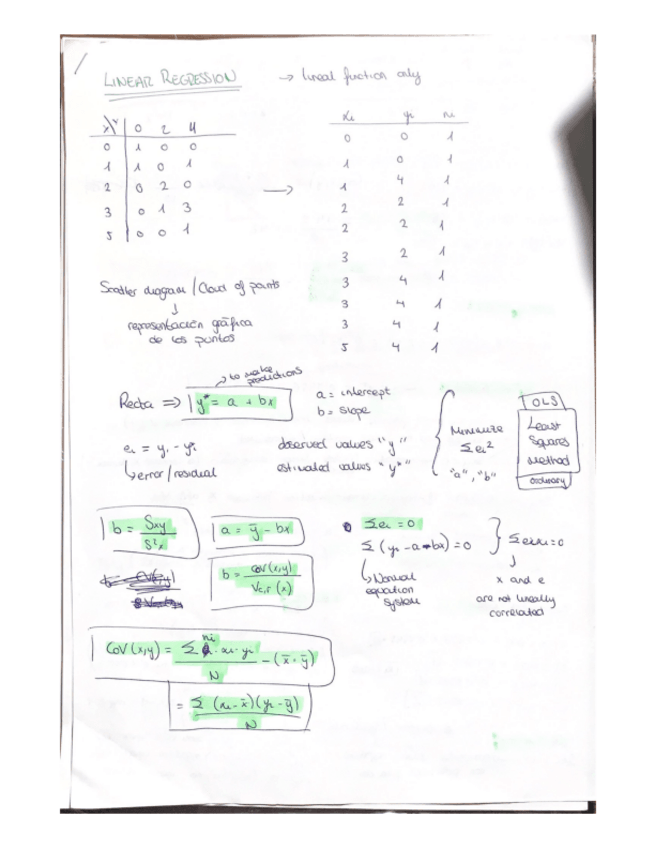 LINEAR REGRESSION → lineal function only
X\Y 0 2 4
0 1 0 0
1 1 0 1
2 0 2 0
3 0 1 3
5 0 0 1
→
xi yi ni
0 0 1
1 0 1
1 4 1
2 2 1
2 2 1
3 2 1
3 4 1
3 4 1
3 4 1
5 4 1
Scatter diagram / Cloud of points
↓
representación gráfica
de los puntos
→ to make
predictions
Recta ⇒ y* = a + bx
a = intercept
b = slope
ei = yi - yi*
↳ error/residual
observed values "y"
estimated values "y*"
Minimize
Σei²
"a", "b"
OLS
Least
Squares
Method
ordinary
b = Sxy / S²x
a = ȳ - bx̄
b = cov(x,y) / Var(x)
Σei = 0
Σ(yi - a - bx) = 0
↳ Normal
equation
system
Σeixi = 0
↓
x and e
are not lineally
correlated
Cov(x,y) = Σ ni · xi · yi / N - (x̄ · ȳ)
= Σ (xi - x̄)(yi - ȳ) / N